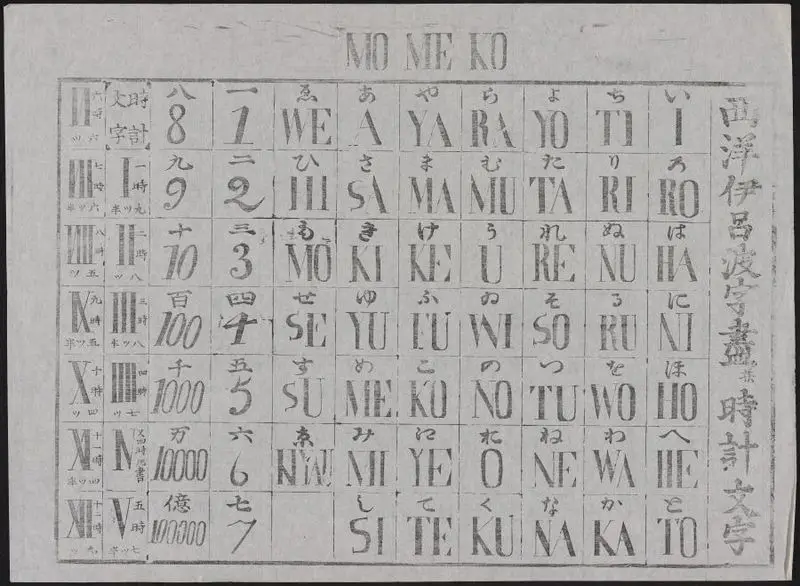 MO ME KO
西洋伊呂波字盡并時計文字
い I
ろ RO
は HA
に NI
ほ HO
へ HE
と TO
ち TI
り RI
ぬ NU
る RU
を WO
わ WA
か KA
よ YO
た TA
れ RE
そ SO
つ TU
ね NE
な NA
ら RA
む MU
う U
ゐ WI
の NO
お O
く KU
や YA
ま MA
け KE
ふ FU
こ KO
え YE
て TE
あ A
さ SA
き KI
ゆ YU
め ME
み MI
し SI
ゑ WE
ひ HI
も MO
せ SE
す SU
京
一 1
二 2
三 3
四 4
五 5
六 6
七 7
八 8
九 9
十 10
百 100
千 1000
万 10000
億 100000
時計文字
I 一時 九ッ半
II 二時 八ッ
III 三時 八ッ半
IIII 四時 七ッ
IV 又四時
V 五時 七ッ半
六時 六ッ
七時 六ッ半
八時 五ッ
IX 九時 五ッ半
X 十時 四ッ
XI 十一時 四ッ半
XII 十二時 九ッ